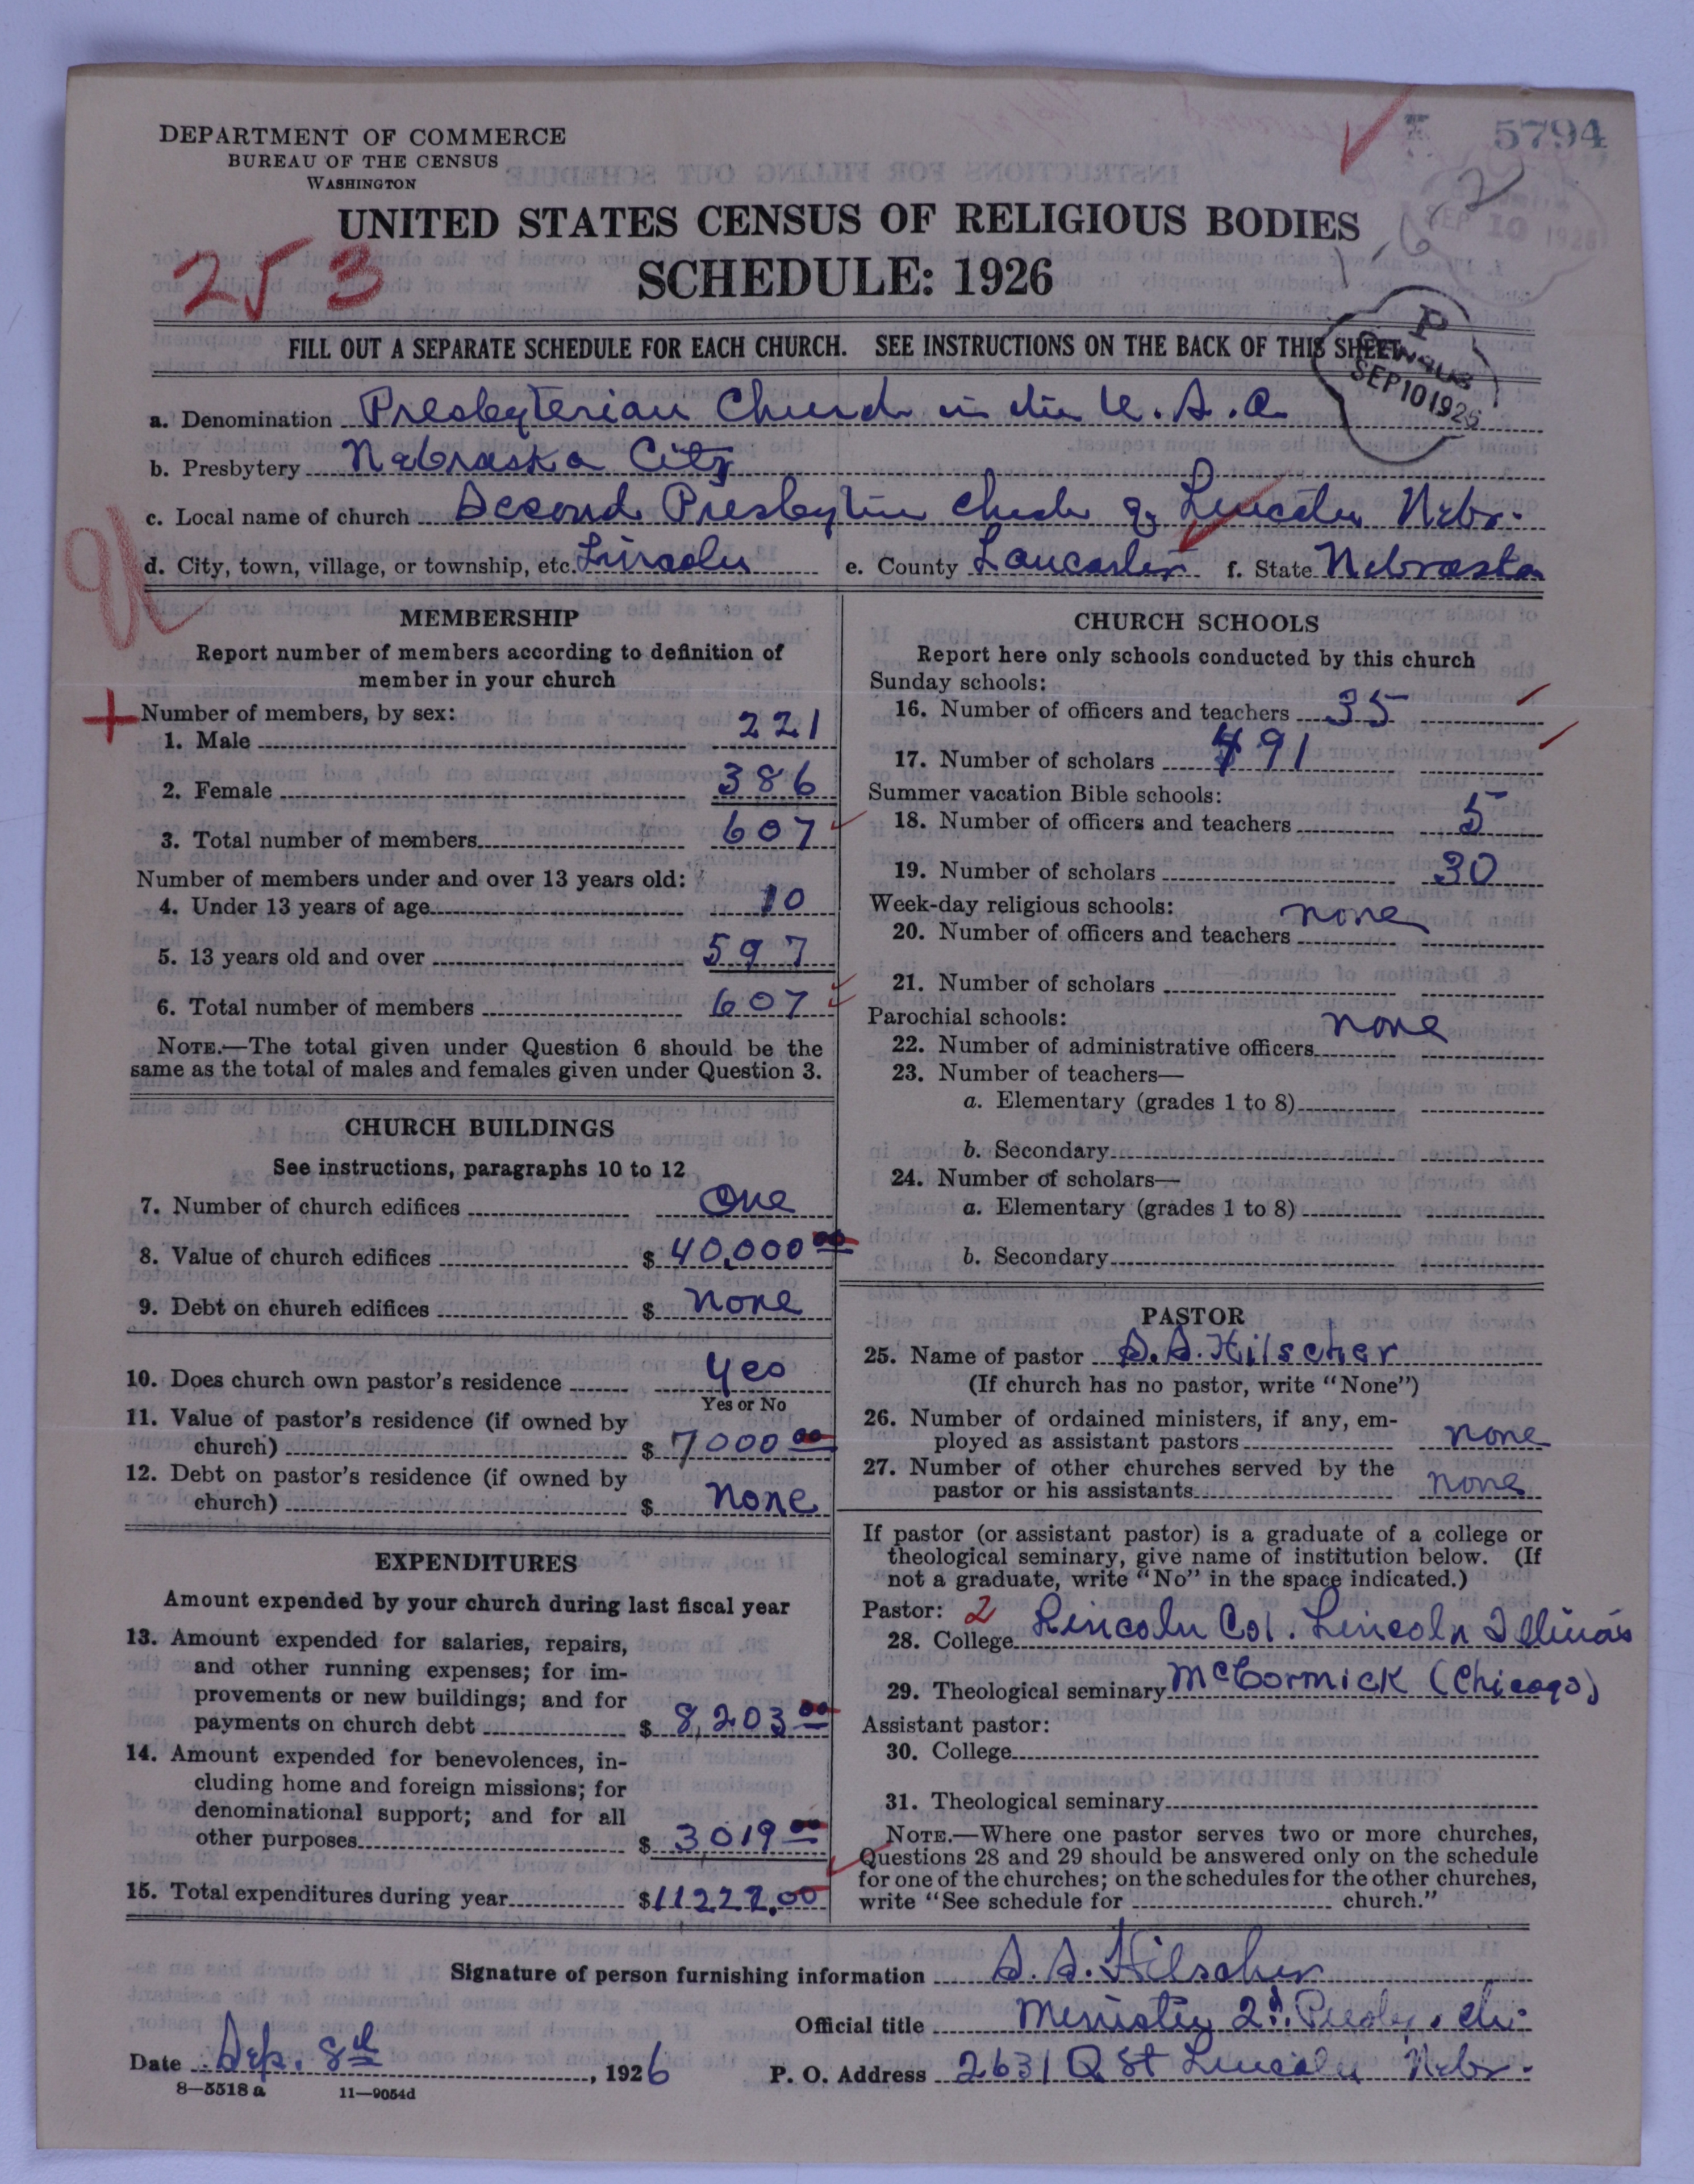 5794
DEPARTMENT OF COMMERCE
BUREAU OF THE CENSUS
WASHINGTON
UNITED STATES CENSUS OF RELIGIOUS BODIES
SCHEDULE: 1926
253
SEP 10 1926
P
CENSUS
SEP 10 1926
FILL OUT A SEPARATE SCHEDULE FOR EACH CHURCH. SEE INSTRUCTIONS ON THE BACK OF THIS SHEET
a. Denomination Presbyterian Church in the U.S.A.
b. Presbytery Nebraska City
c. Local name of church Second Presbyterian Church of Lincoln Nebr.
d. City, town, village, or township, etc. Lincoln e. County Lancaster f. State Nebraska
MEMBERSHIP
Report number of members according to definition of
member in your church
Number of members, by sex:
1. Male 221
2. Female 386
3. Total number of members 607
Number of members under and over 13 years old:
4. Under 13 years of age 10
5. 13 years old and over 597
6. Total number of members 607
NOTE.—The total given under Question 6 should be the
same as the total of males and females given under Question 3.
CHURCH BUILDINGS
See instructions, paragraphs 10 to 12
7. Number of church edifices One
8. Value of church edifices $ 40,000 00
9. Debt on church edifices $ none
10. Does church own pastor's residence yes
Yes or No
11. Value of pastor's residence (if owned by
church) $ 7000 00
12. Debt on pastor's residence (if owned by
church) $ none
EXPENDITURES
Amount expended by your church during last fiscal year
13. Amount expended for salaries, repairs,
and other running expenses; for im-
provements or new buildings; and for
payments on church debt $ 8,203 00
14. Amount expended for benevolences, in-
cluding home and foreign missions; for
denominational support; and for all
other purposes $ 3019 00
15. Total expenditures during year $ 11222.00
CHURCH SCHOOLS
Report here only schools conducted by this church
Sunday schools:
16. Number of officers and teachers 35
17. Number of scholars 491
Summer vacation Bible schools:
18. Number of officers and teachers 5
19. Number of scholars 30
Week-day religious schools:
20. Number of officers and teachers none
21. Number of scholars
Parochial schools:
22. Number of administrative officers none
23. Number of teachers—
a. Elementary (grades 1 to 8)
b. Secondary
24. Number of scholars—
a. Elementary (grades 1 to 8)
b. Secondary
PASTOR
25. Name of pastor S. S. Hilscher
(If church has no pastor, write "None")
26. Number of ordained ministers, if any, em-
ployed as assistant pastors none
27. Number of other churches served by the
pastor or his assistants none
If pastor (or assistant pastor) is a graduate of a college or
theological seminary, give name of institution below. (If
not a graduate, write "No" in the space indicated.)
Pastor: 2
28. College Lincoln Col. Lincoln Illinois
29. Theological seminary McCormick (Chicago)
Assistant pastor:
30. College
31. Theological seminary
NOTE.—Where one pastor serves two or more churches,
Questions 28 and 29 should be answered only on the schedule
for one of the churches; on the schedules for the other churches,
write "See schedule for church."
Signature of person furnishing information S. S. Hilscher
Official title Minister 2d. Presby. Ch.
Date Sep. 8th, 1926 P. O. Address 2631 Q St Lincoln Nebr.
8—5518 a 11—9054d